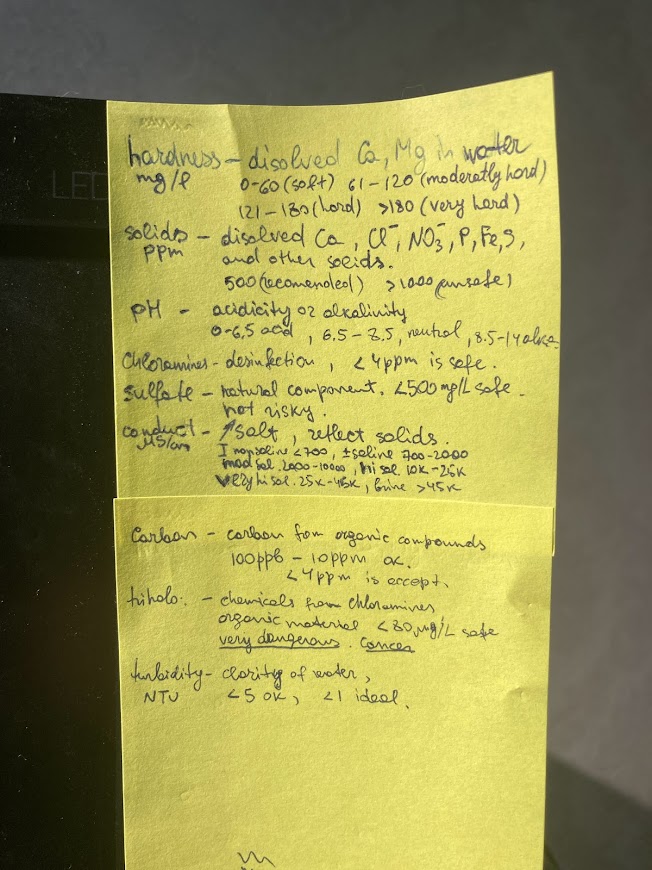 LED
hardness - disolved Ca, Mg in water
mg/l 0-60 (soft) 61-120 (moderatly hard)
121-180 (hard) >180 (very hard)
solids - disolved Ca, Cl⁻, NO₃⁻, P, Fe, S,
ppm and other solids.
500 (recomended) >1000 (unsafe)
pH - acidicity or alkalinity
0-6,5 acid, 6.5-8.5, neutral, 8.5-14 alka.
Chloramines - desinfection, <4ppm is safe.
sulfate - natural component, <500 mg/L safe.
not risky.
conduct - ↑salt, reflect solids.
µS/cm I nonsaline <700, ±saline 700-2000
mod sal. 2000-10000, hi sal 10K-25K
very hi sal. 25K-45K, brine >45K
Carbon - carbon from organic compounds
100ppb - 10ppm ok.
<4ppm is accept.
trihalo. - chemicals from chloramines
organic material <80 µg/L safe
very dangerous. Cancer
turbidity - clarity of water,
NTU <5 ok, <1 ideal.